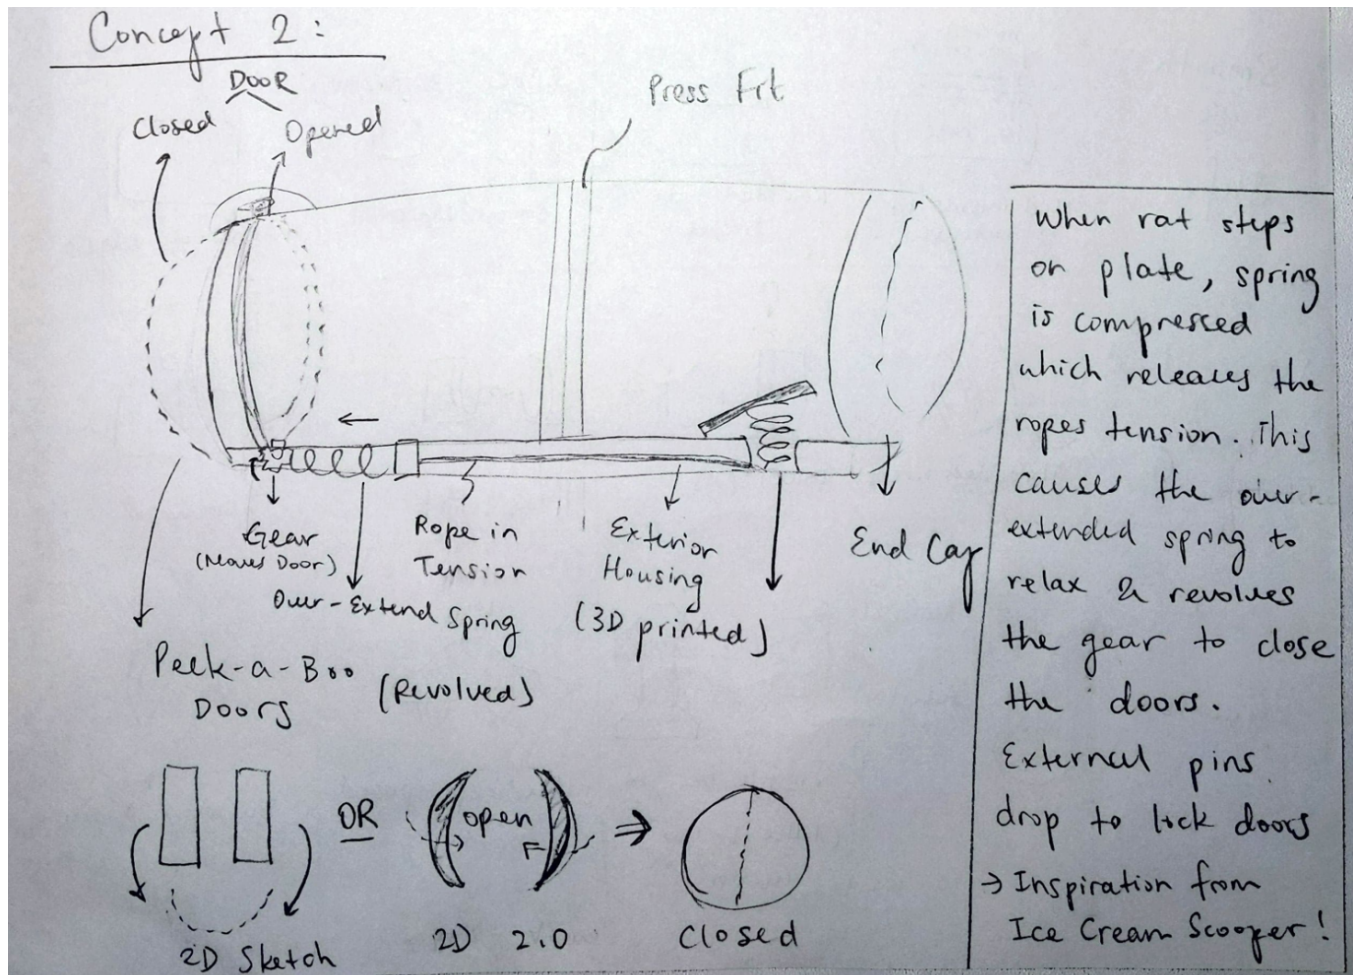 Concept 2:
DOOR
Closed
Opened
Press Fit
Gear
(Moves Door)
Over-Extend Spring
Rope in
Tension
Exterior
Housing
(3D printed)
End Cap
Peek-a-Boo
Doors
(Revolved)
OR
open
2D Sketch
2D 2.0
Closed
When rat steps
on plate, spring
is compressed
which releases the
ropes tension. This
causes the over-
extended spring to
relax & revolves
the gear to close
the doors.
External pins
drop to lock doors
→ Inspiration from
Ice Cream Scooper!